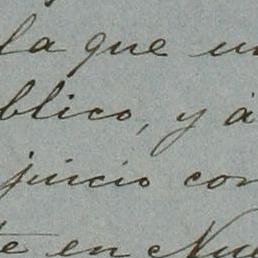 la que un
blico, y á
juicio con
te en Nue